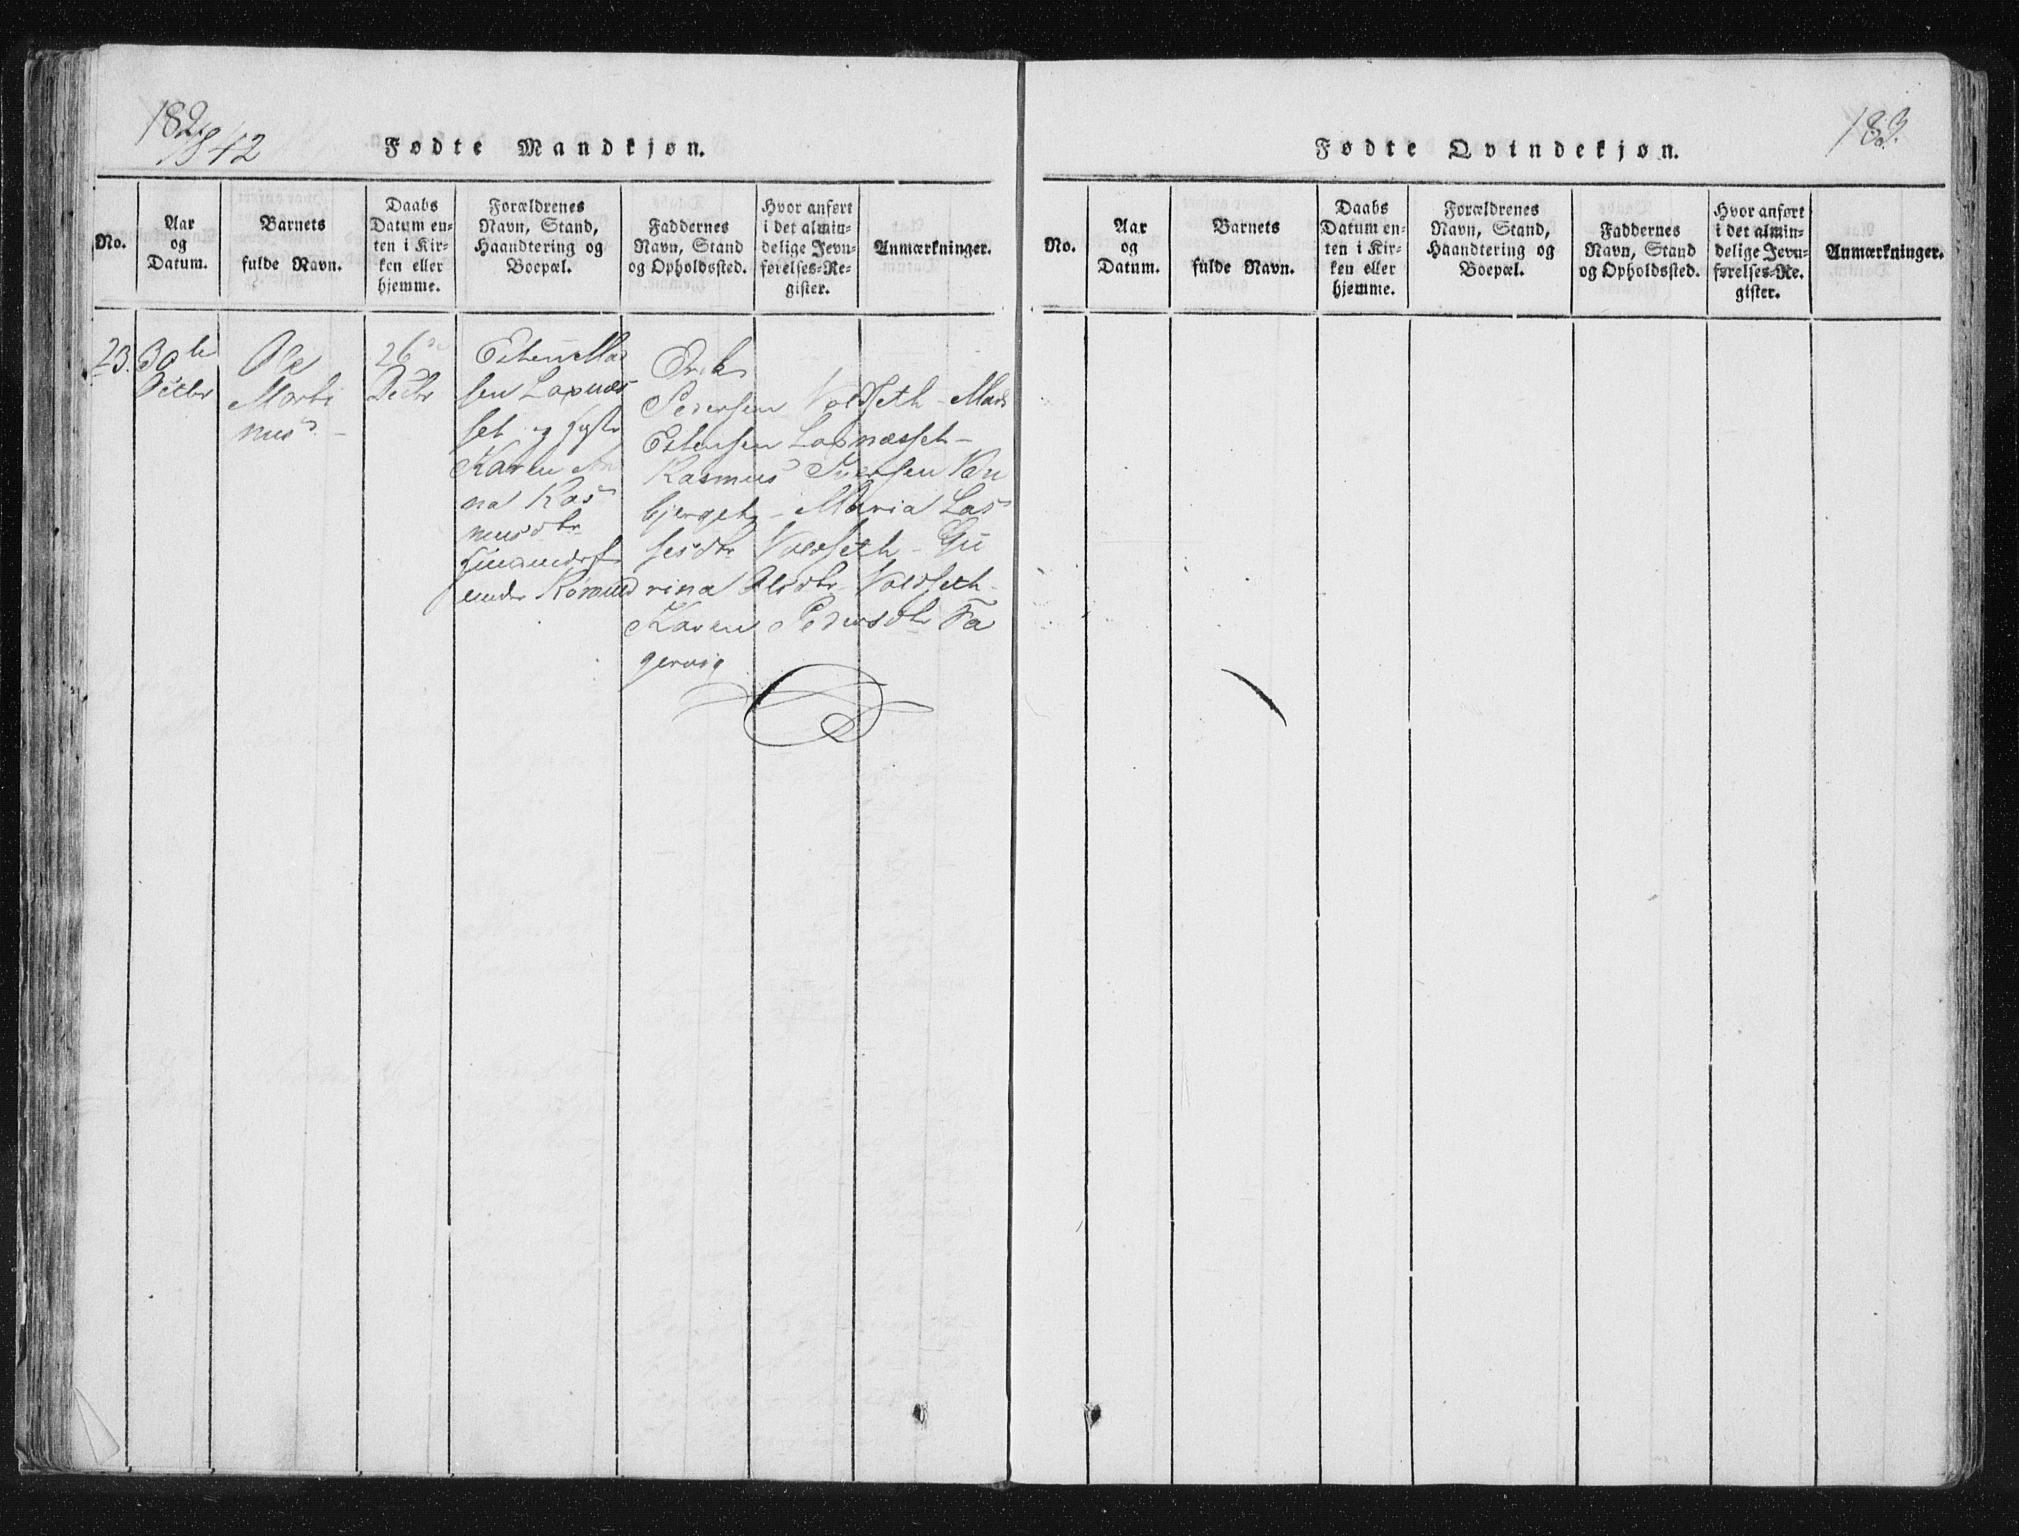 182.
1842
Fødte Mandkjøn.
No.
Aar
og
Datum.
Barnets
fulde Navn.
Daabs
Datum en-
ten i Kir-
ken eller
hjemme.
Forældrenes
Navn, Stand,
Haandtering og
Boepæl.
Faddernes
Navn, Stand
og Opholdssted.
Hvor anført
i det almin-
delige Jevn-
førelses-Re-
gister.
Anmærkninger.
23.
30te
Octbr
Ole
Marti
nus. -
26de
Decbr
Esten Mad
sen Laxnæs
set og Hustr
Karen An
na Ras
musdtr
Huusmdsf
under Korsnes
Erik
Pedersen Voldseth - Mads
Estensen Laxnæsset -
Rasmus Iversen
bjerget - Maria Las
sesdtr Voldseth - Gu
rina Olsdtr Voldseth -
Karen Pedersdtr Fa
gervig
183.
Fødte Qvindekjøn.
No.
Aar
og
Datum.
Barnets
fulde Navn.
Daabs
Datum en-
ten i Kir-
ken eller
hjemme.
Forældrenes
Navn, Stand,
Haandtering og
Boepæl.
Faddernes
Navn, Stand
og Opholdssted.
Hvor anført
i det almin-
delige Jevn-
førelses-Re-
gister.
Anmærkninger.